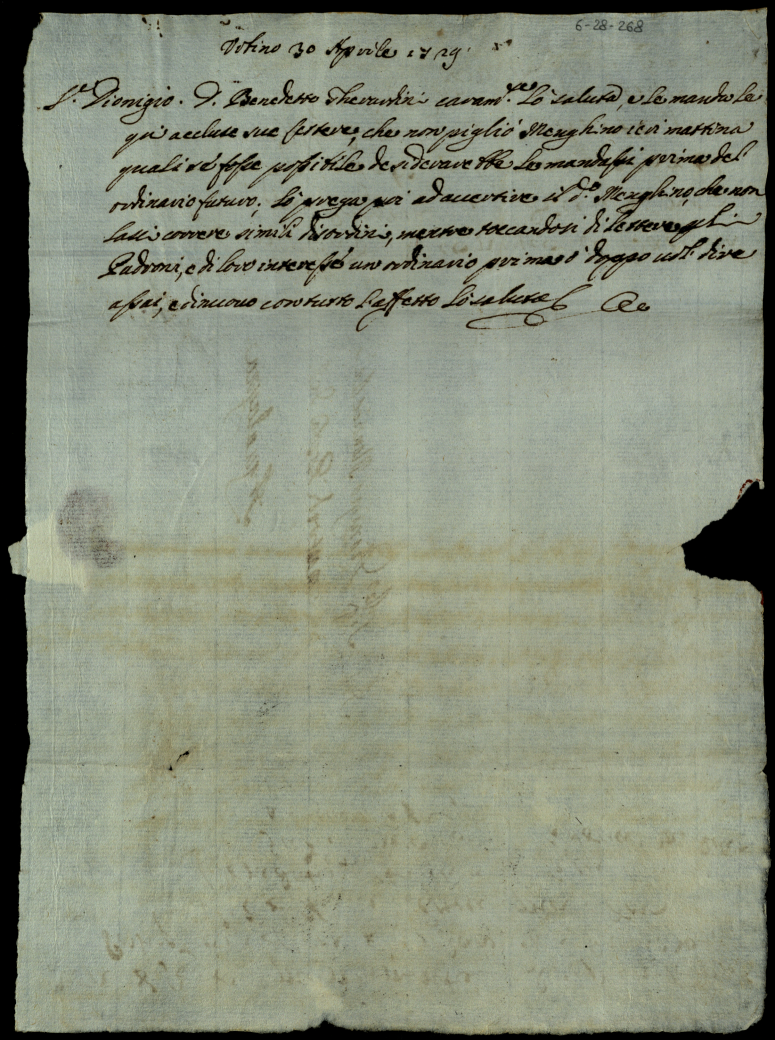 6-28-268
Urbino 30 Aprile 1729
S.r Dionigio. D. Benedetto Gherardini caram.te Lo saluta, e Le manda Le
qui accluse sue lettere, che non pigliò Menghino ieri mattina
quali se fosse possibile desiderarebbe Le mandassi prima del
ordinario futuro; Lo prega poi ad avertire il d.o Menghino, che non
lassi correre simili disordini, mentre toccandosi di lettere
Padroni, e di loro interesse un ordinario prima ò doppo vol dire
assai, e di nuovo con tutto l'affetto Lo saluta